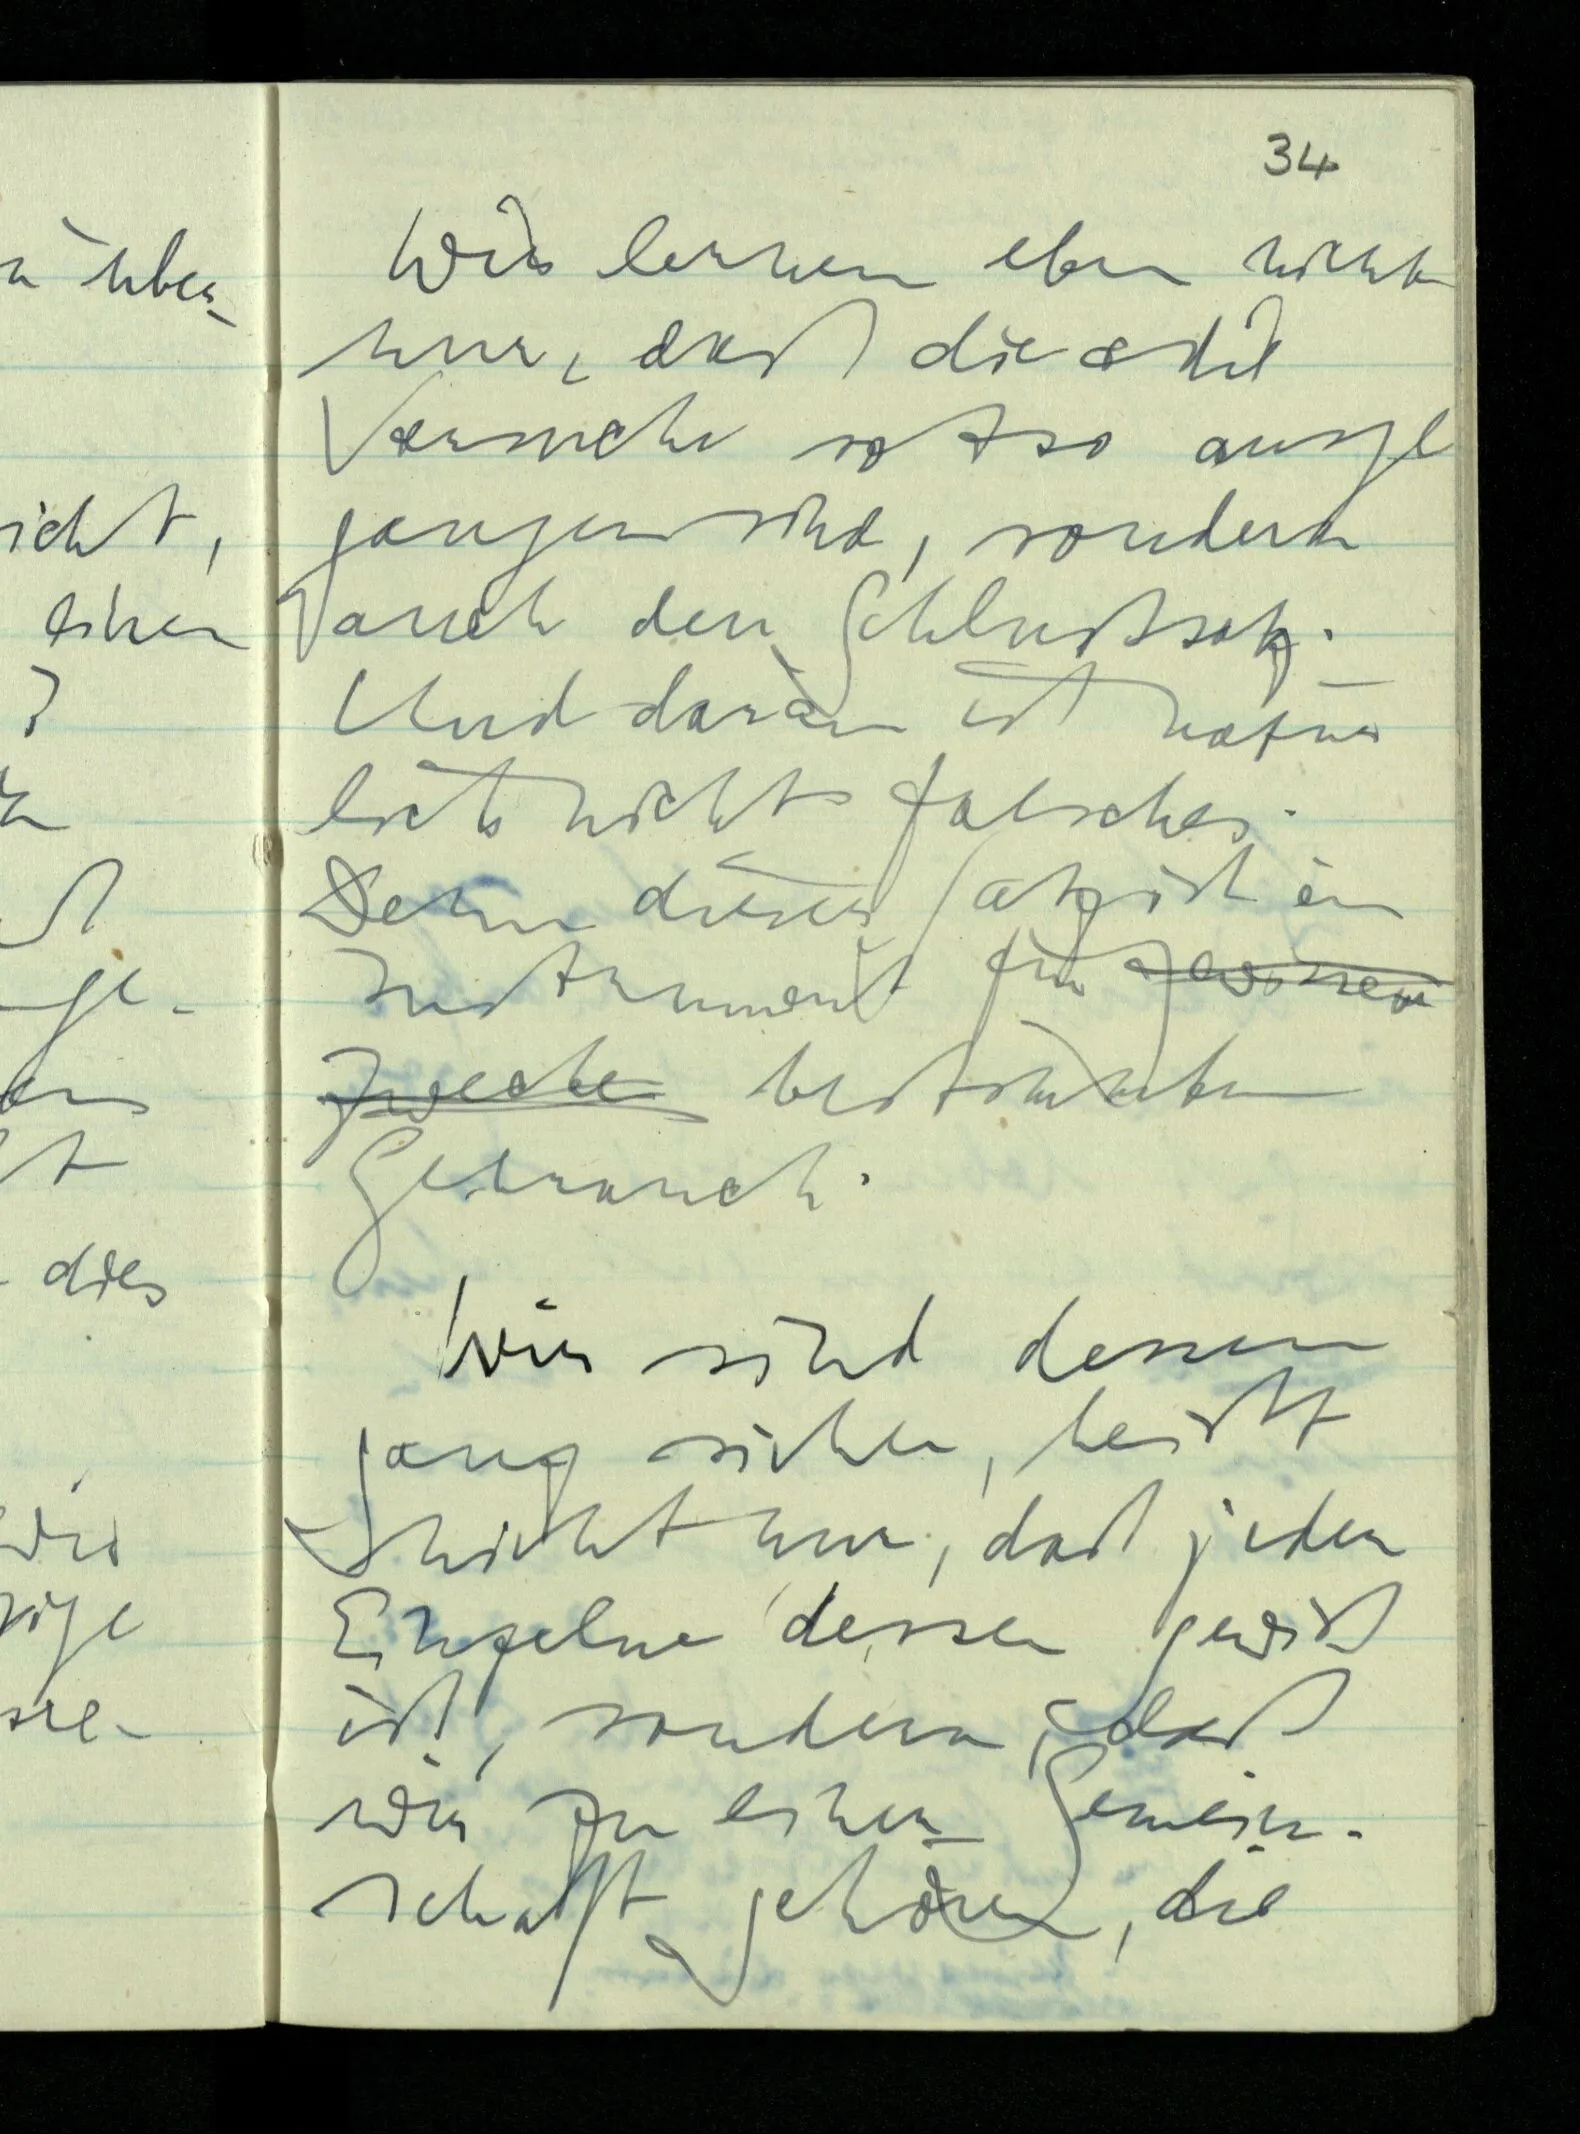 über-
icht,
einen
?
ge-
dies
wir
34
Wir lernen eben nicht
nur, daß die & die
Versuche so & so ausge
gangen sind, sondern
auch den Schlußsatz.
Und daran ist natür
lich nichts falsches.
Denn dieser Satz ist ein
Instrument für gewissen
Zwecke bestimmten
Gebrauch.
Wir sind dessen
ganz sicher, heißt
nicht nur, daß jeder
Einzelne dessen gewiß
ist, sondern, daß
wir zu einer Gemein-
schaft gehören, die